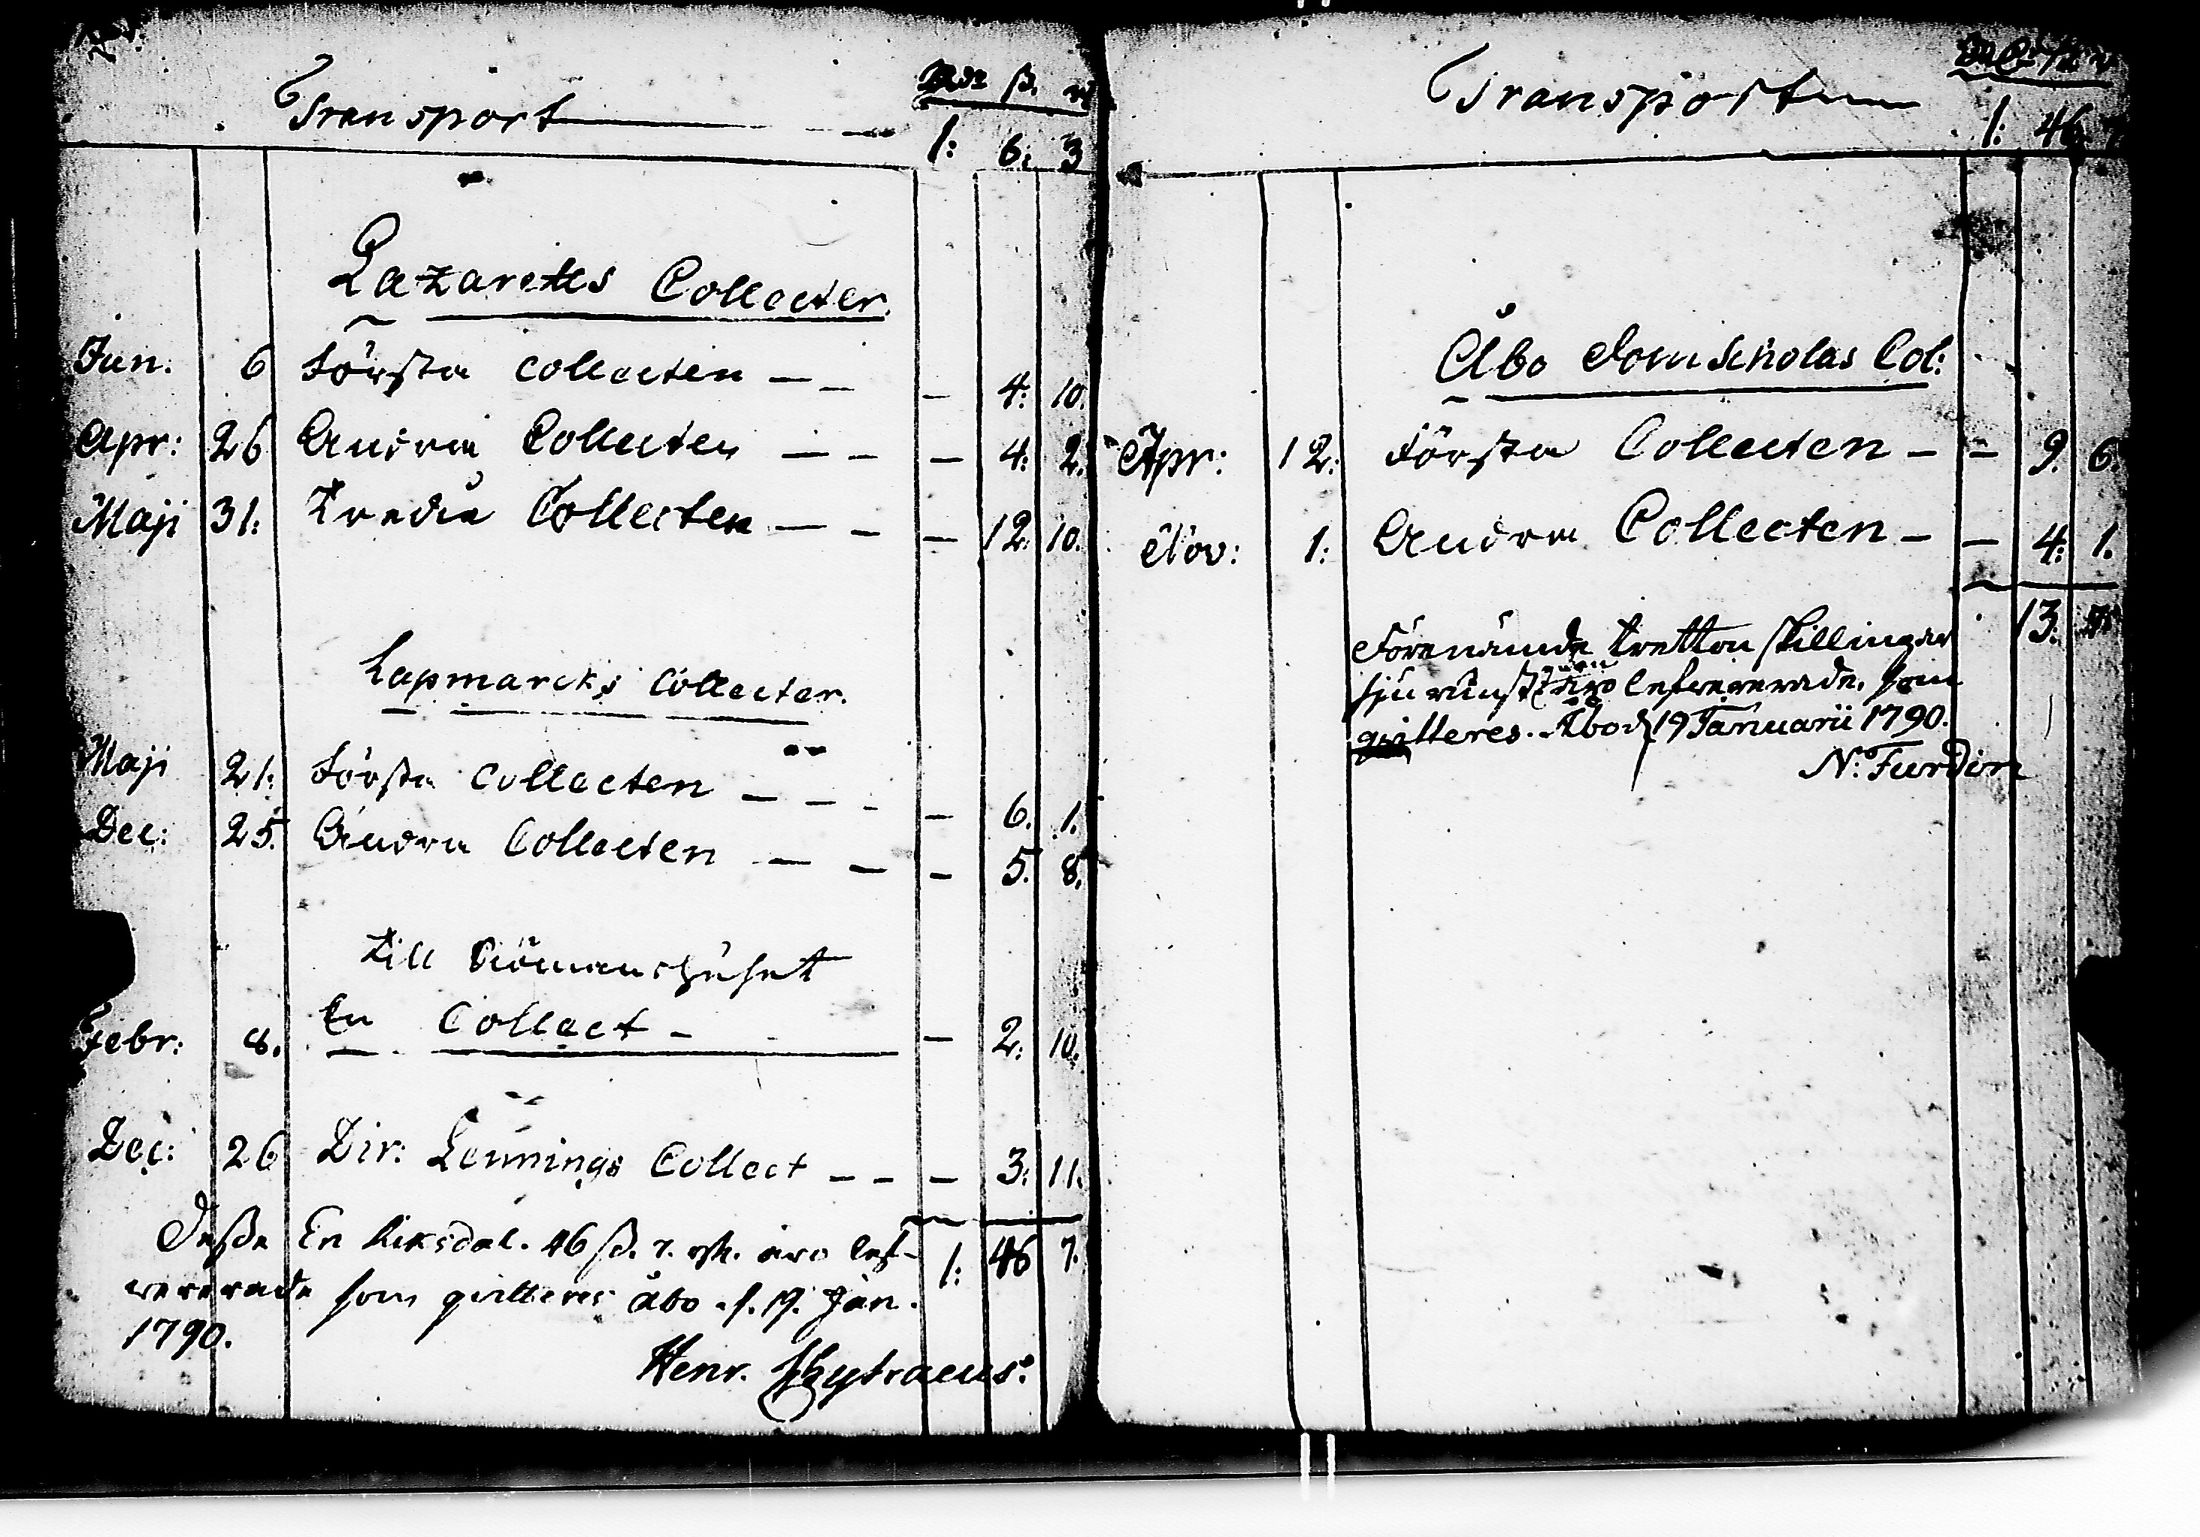 Rdr ß. rst
Transport — 1: 6: 3
Lazaretts Collecter.
Jan: 6 Första Collecten — — — 4: 10.
Apr: 26 Andra Collecten — — — 4: 2.
Maji 31: Tredie Collecten — — — 12: 10.
Lapmarcks Collecter.
Maji 21: Första Collecten — — — — 6. 1.
Dec: 25. Andra Collecten — — — 5. 8.
till Siömanshuset
Febr: 8. En Collect — — 2: 10.
Dec: 26 Dir: Lennings Collect — — — 3: 11.
Deße En Riksdal. 46 ß. 7. rst. äro lef- 1: 46 7.
vererade som qvitteres Åbo d. 19. Jan.
1790.
Henr. Chytraeus.
Transport — 1: 46. 7.
Åbo Domscholas Col:
Apr: 12. Första Collecten — — 9. 6.
Nov: 1: Andra Collecten — — 4: 1.
13. 7.
Förenämnde tretton skillingar
sju runst äro lefvererade, som
qvitteres. Åbo d 19 Januarii 1790.
N. Jurdin